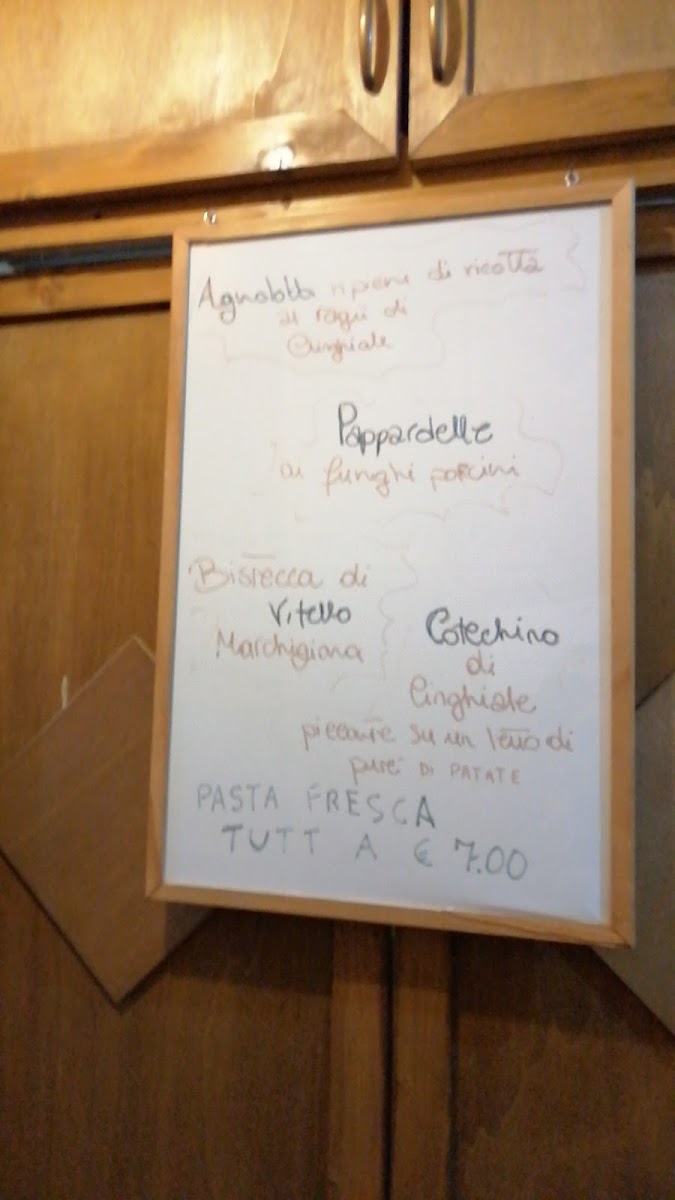 Agnolotti ripieni di ricotta
al ragù di
Cinghiale
Pappardelle
ai funghi porcini
Bistecca di
Vitello
Marchigiana
Cotechino
di
Cinghiale
piccante su un letto di
purè DI PATATE
PASTA FRESCA
TUTT A € 7.00